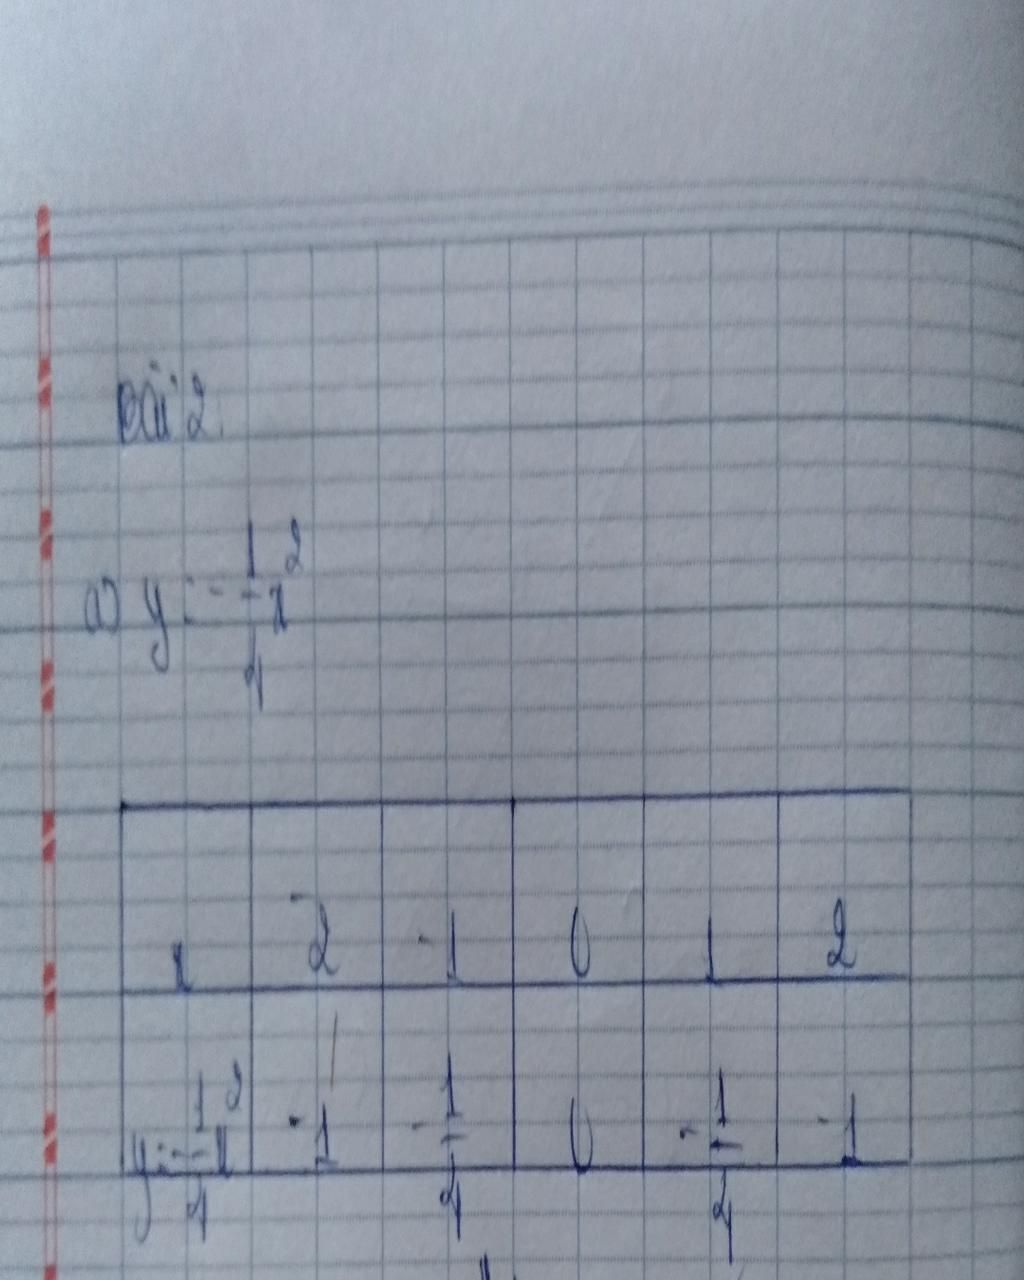 Bài 2.
a) y = -1/4 x²
x -2 -1 0 1 2
y = -1/4 x² -1 -1/4 0 -1/4 -1